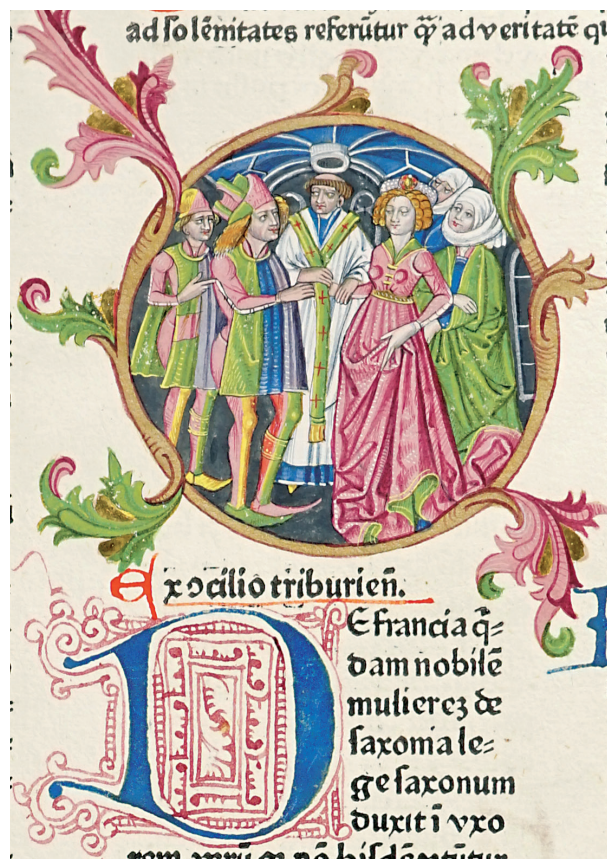 ad solēnitates referūtur q̄ꝫ ad veritatē
Ex ↄcilio triburieñ.
De francia q̄⸗
dam nobilē
mulierez de
saxonia le⸗
ge saxonum
duxit ī vxo